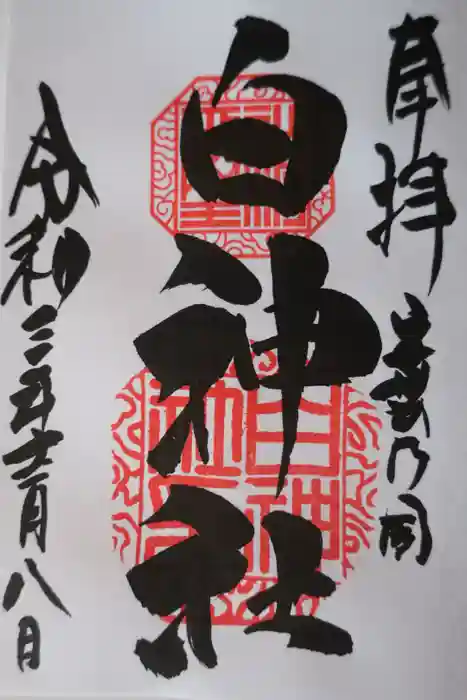 奉拝
白神社
令和三年十二月八日